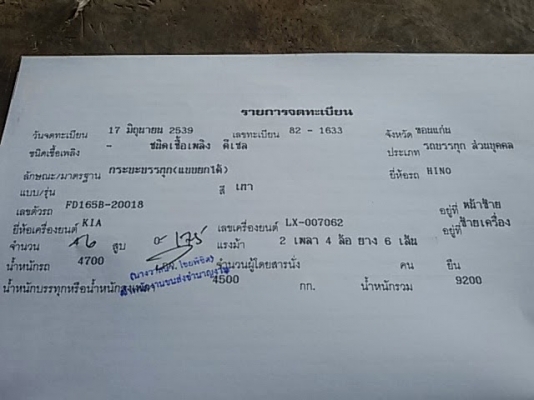 รายการจดทะเบียน
วันจดทะเบียน 17 มิถุนายน 2539 เลขทะเบียน 82 - 1633 จังหวัด ขอนแก่น
ชนิดเชื้อเพลิง - ชนิดเชื้อเพลิง ดีเซล ประเภท รถบรรทุก ส่วนบุคคล
ลักษณะ/มาตรฐาน กระบะบรรทุก(แบบยกได้) ยี่ห้อรถ HINO
แบบ/รุ่น สี เทา
เลขตัวรถ FD165B-20018 อยู่ที่ หน้าซ้าย
ยี่ห้อเครื่องยนต์ KIA เลขเครื่องยนต์ LX-007062 อยู่ที่ ซ้ายเครื่อง
จำนวน สูบ 175 แรงม้า 2 เพลา 4 ล้อ ยาง 6 เส้น
น้ำหนักรถ 4700 จำนวนผู้โดยสารนั่ง คน ยืน
น้ำหนักบรรทุกหรือน้ำหนัก 4500 กก. น้ำหนักรวม 9200